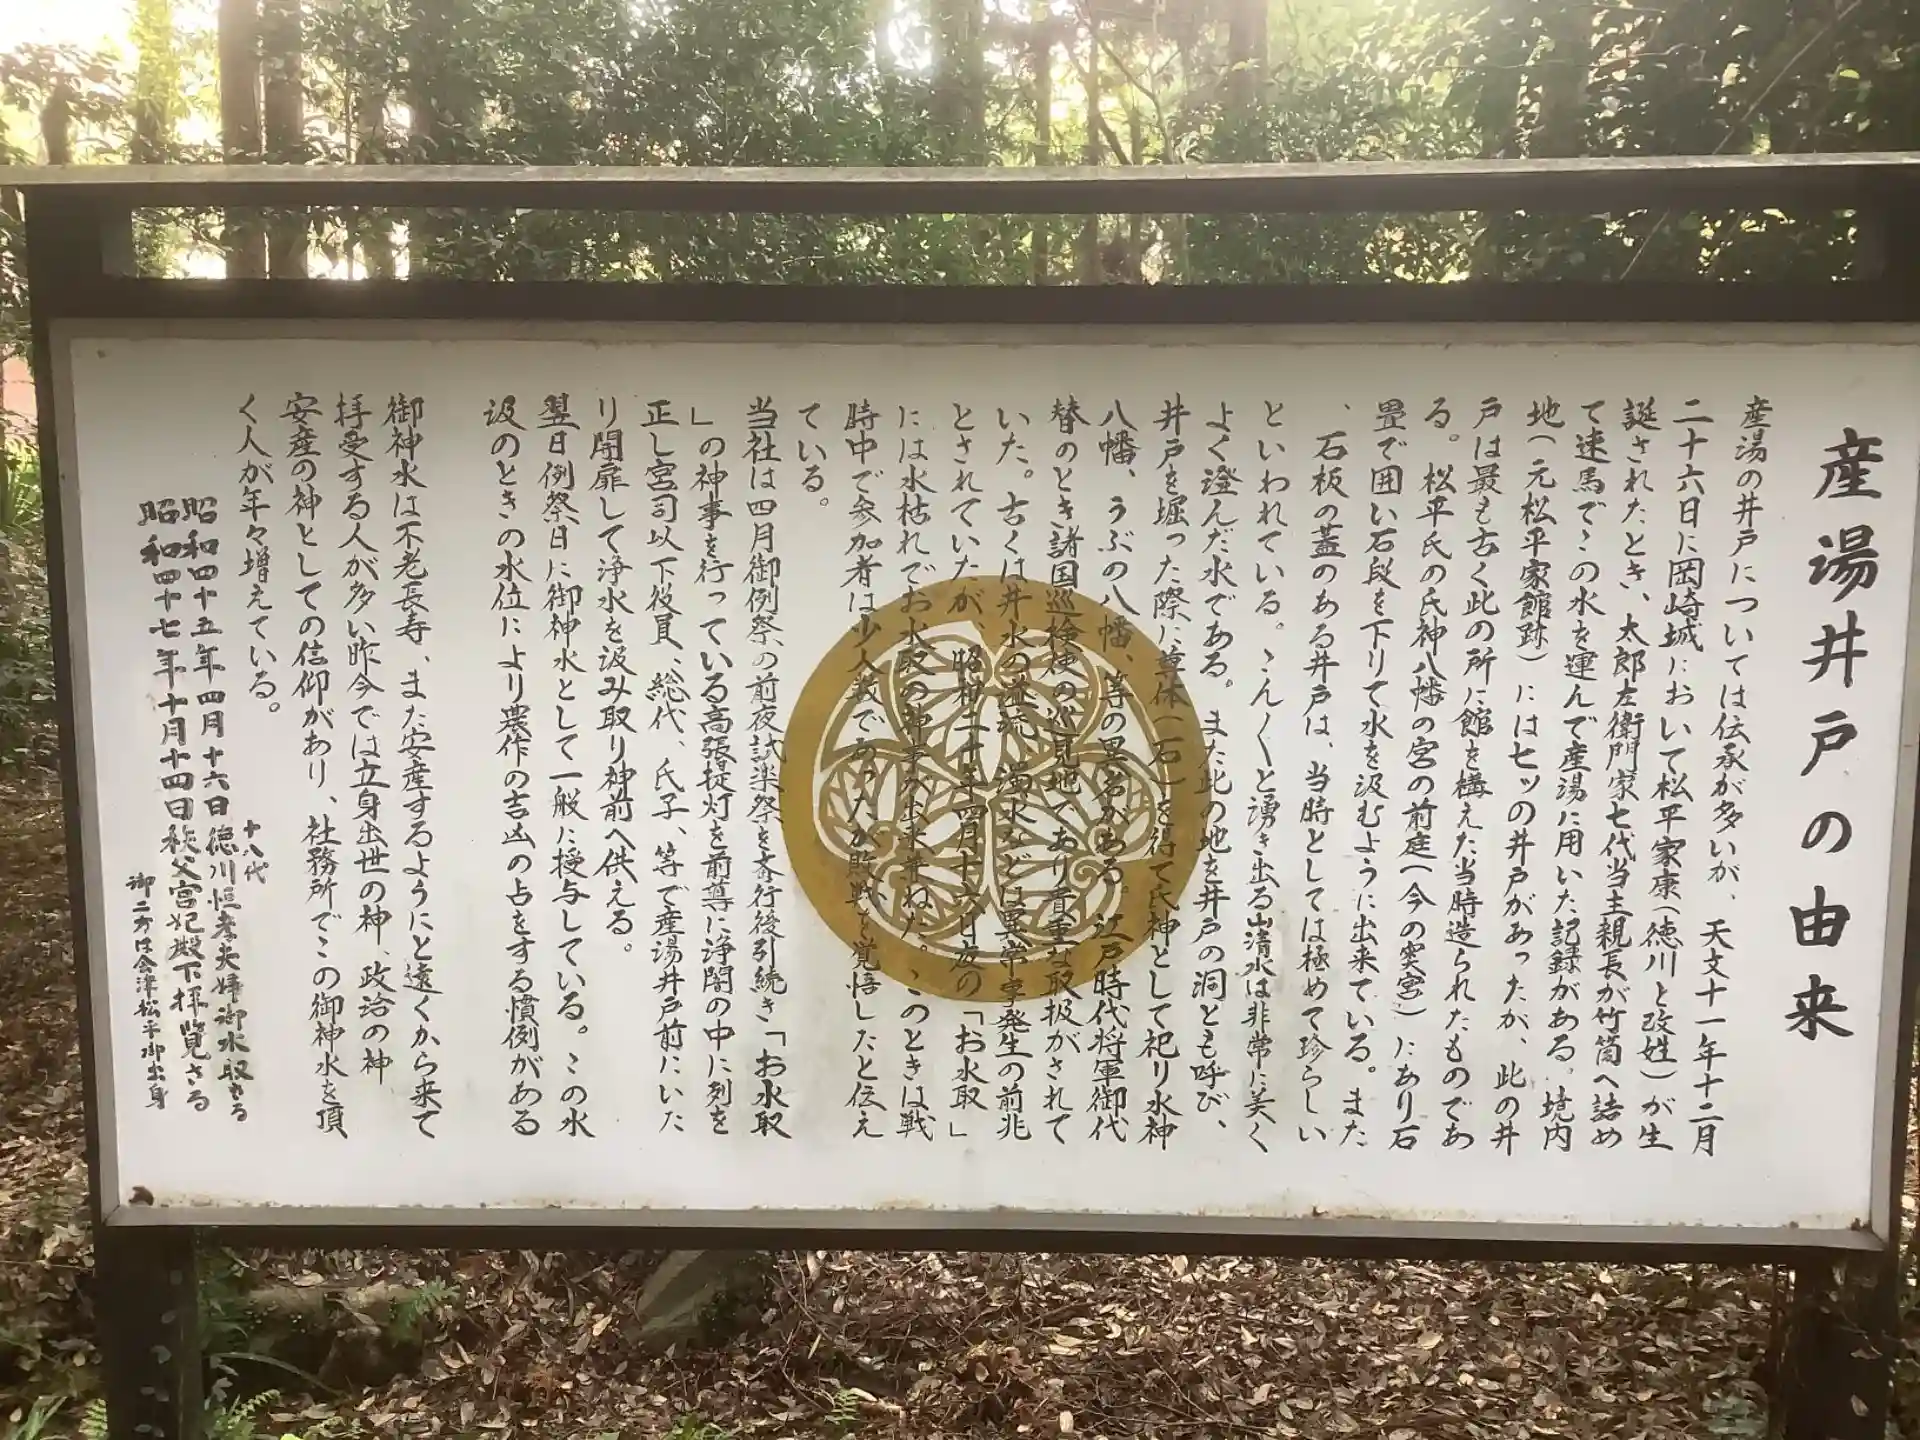 産湯井戸の由来
産湯の井戸については伝承が多いが、天文十一年十二月
二十六日に岡崎城において松平家康(徳川と改姓)が生
誕されたとき、太郎左衛門家七代当主親長が竹筒へ詰め
て速馬でこの水を運んで産湯に用いた記録がある。境内
地(元松平家館跡)には七ッの井戸があったが、此の井
戸は最も古く此の所に館を構えた当時造られたものであ
る。松平氏の氏神八幡の宮の前庭(今の奥宮)にあり石
畳で囲い石段を下りて水を汲むように出来ている。また
、石板の蓋のある井戸は、当時としては極めて珍らしい
といわれている。こんく〱と湧き出る山清水は非常に美く
よく澄んだ水である。また此の地を井戸の洞とも呼び、
井戸を堀った際に尊体(石)を得て氏神として祀り水神
八幡、うぶの八幡、等の異名がある。江戸時代将軍御代
替のとき諸国巡検使の巡見地であり貴重な取扱がされて
いた。古くは井水の溢流、濁水などは異常事発生の前兆
とされていたが、昭和二十年四月十六日夜の「お水取」
には水枯れでお水取の神事が出来兼ねた。このときは戦
時中で参加者は少人数であったが敗戦を覚悟したと伝え
ている。
当社は四月御例祭の前夜試楽祭を斎行後引続き「お水取
」の神事を行っている高張提灯を前導に浄闇の中に列を
正し宮司以下役員、総代、氏子、等で産湯井戸前にいた
り開扉して浄水を汲み取り神前へ供える。
翌日例祭日に御神水として一般に授与している。この水
汲のときの水位により農作の吉凶の占をする慣例がある
御神水は不老長寿、また安産するようにと遠くから来て
拝受する人が多い昨今では立身出世の神、政治の神
安産の神としての信仰があり、社務所でこの御神水を頂
く人が年々増えている。
十八代
昭和四十五年四月十六日徳川恒孝夫婦御水取さる
昭和四十七年十月十四日秩父宮妃殿下拝覧さる
御二方は会津松平御出身